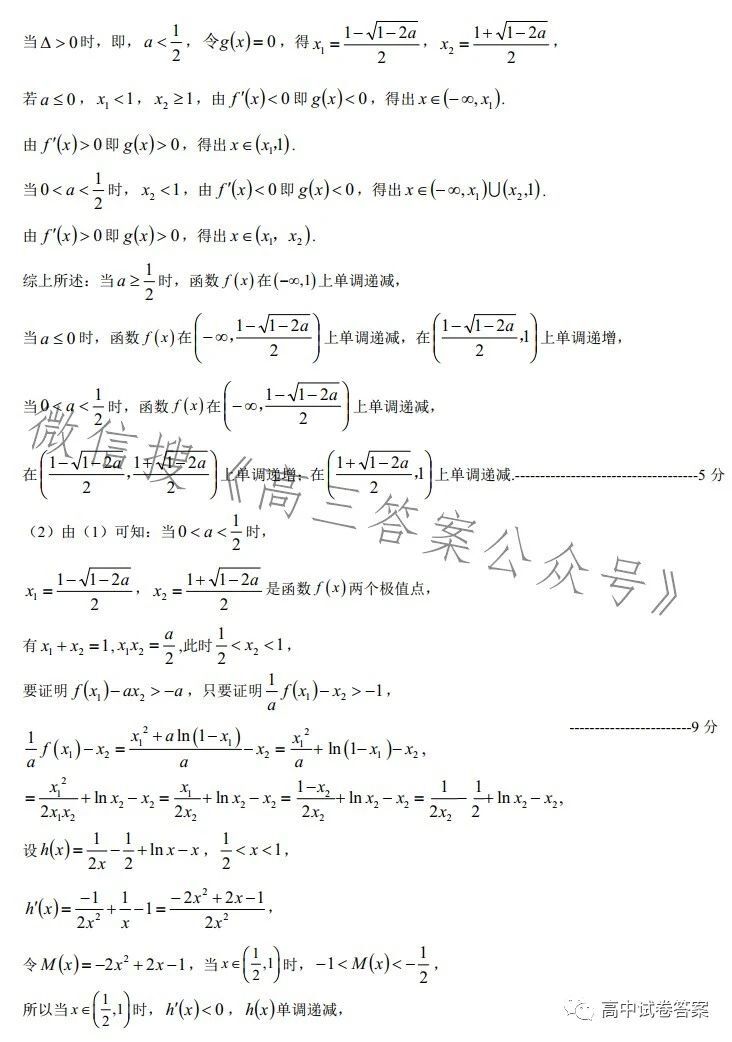 当Δ>0时，即，a<1/2，令g(x)=0，得x₁=(1-√(1-2a))/2，x₂=(1+√(1-2a))/2，
若a≤0，x₁<1，x₂≥1，由f′(x)<0即g(x)<0，得出x∈(-∞,x₁).
由f′(x)>0即g(x)>0，得出x∈(x₁,1).
当0<a<1/2时，x₂<1，由f′(x)<0即g(x)<0，得出x∈(-∞,x₁)∪(x₂,1).
由f′(x)>0即g(x)>0，得出x∈(x₁，x₂).
综上所述：当a≥1/2时，函数f(x)在(-∞,1)上单调递减，
当a≤0时，函数f(x)在(-∞,(1-√(1-2a))/2)上单调递减，在((1-√(1-2a))/2,1)上单调递增，
当0<a<1/2时，函数f(x)在(-∞,(1-√(1-2a))/2)上单调递减，
在((1-√(1-2a))/2,(1+√(1-2a))/2)上单调递增；在((1+√(1-2a))/2,1)上单调递减.------------------------------------5分
（2）由（1）可知：当0<a<1/2时，
x₁=(1-√(1-2a))/2，x₂=(1+√(1-2a))/2是函数f(x)两个极值点，
有x₁+x₂=1,x₁x₂=a/2,此时1/2<x₂<1，
要证明f(x₁)-ax₂>-a，只要证明1/a f(x₁)-x₂>-1，
------------------------9分
1/a f(x₁)-x₂=(x₁²+aln(1-x₁))/a-x₂=x₁²/a+ln(1-x₁)-x₂，
=x₁²/(2x₁x₂)+lnx₂-x₂=x₁/(2x₂)+lnx₂-x₂=(1-x₂)/(2x₂)+lnx₂-x₂=1/(2x₂)-1/2+lnx₂-x₂，
设h(x)=1/(2x)-1/2+lnx-x，1/2<x<1，
h′(x)=-1/(2x²)+1/x-1=(-2x²+2x-1)/(2x²)，
令M(x)=-2x²+2x-1，当x∈(1/2,1)时，-1<M(x)<-1/2，
所以当x∈(1/2,1)时，h′(x)<0，h(x)单调递减，
微信搜《高三答案公众号》
高中试卷答案